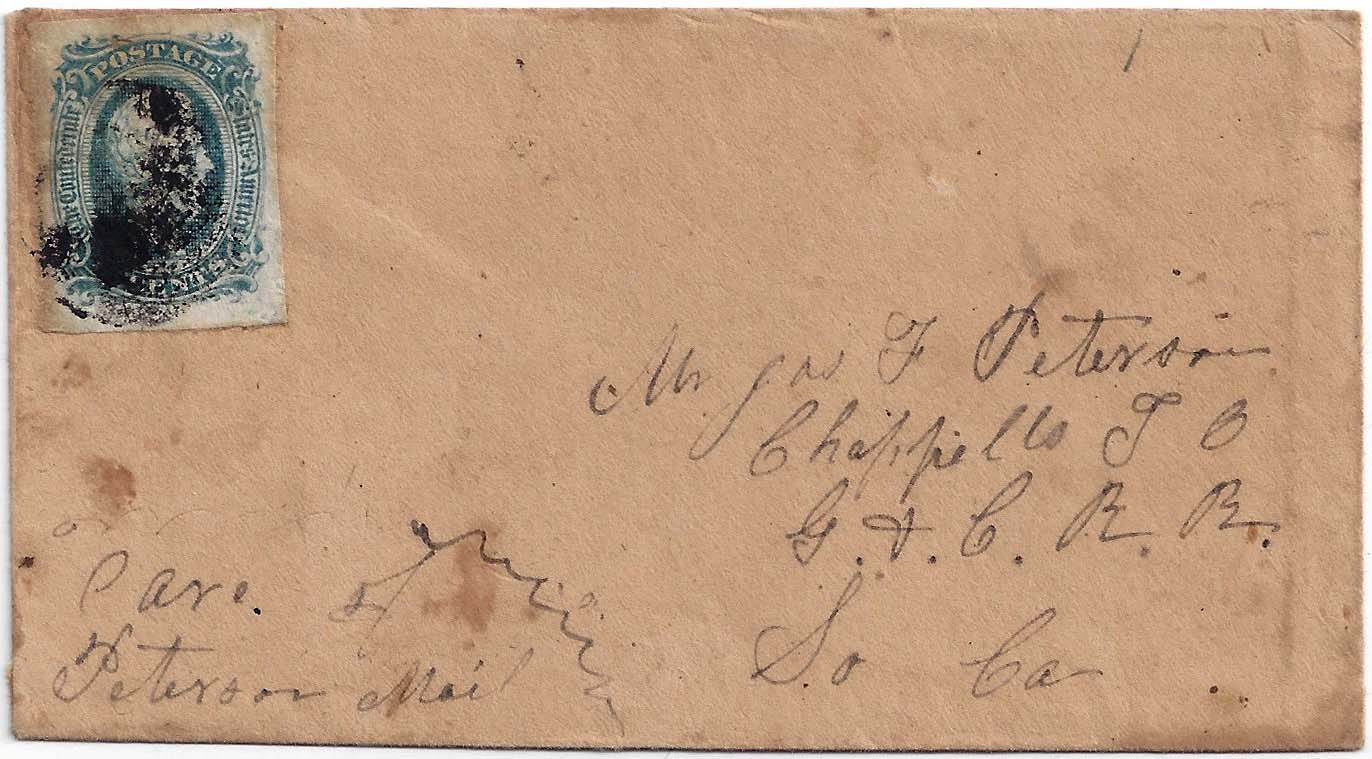 POSTAGE
The Confederate States America
CENTS
Mr Jas F Peterson
Chappells T O
G. & C. R. R.
So Ca
Care of
Peterson Mail